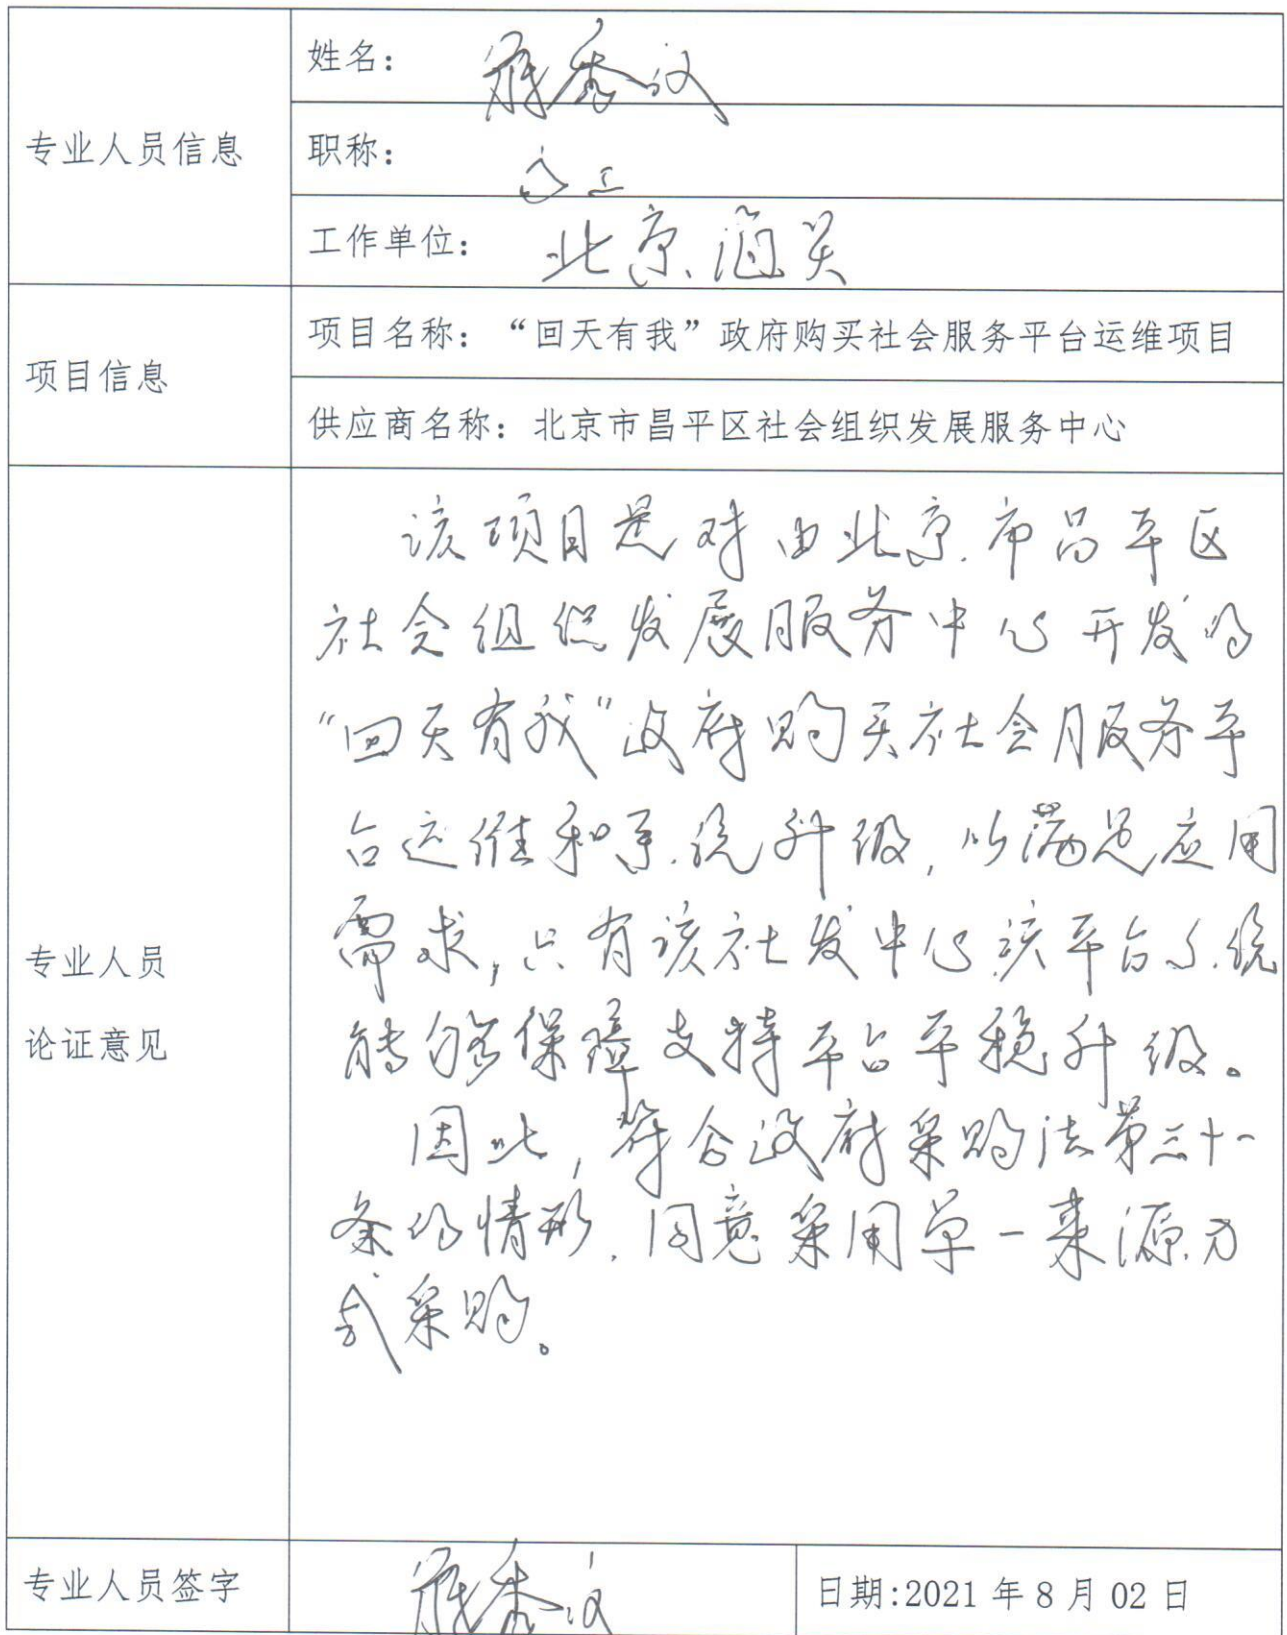 姓名：
专业人员信息
职称：
高工
工作单位： 北京海关
项目信息
项目名称：“回天有我”政府购买社会服务平台运维项目
供应商名称：北京市昌平区社会组织发展服务中心
专业人员
论证意见
该项目是对由北京市昌平区
社会组织发展服务中心开发的
“回天有我”政府购买社会服务平
台运维和系统升级，以满足应用
需求，只有该社发中心该平台系统
能够保障支持平台平稳升级。
因此，符合政府采购法第三十一
条的情形，同意采用单一来源方
式采购。
专业人员签字
日期:2021 年 8 月 02 日